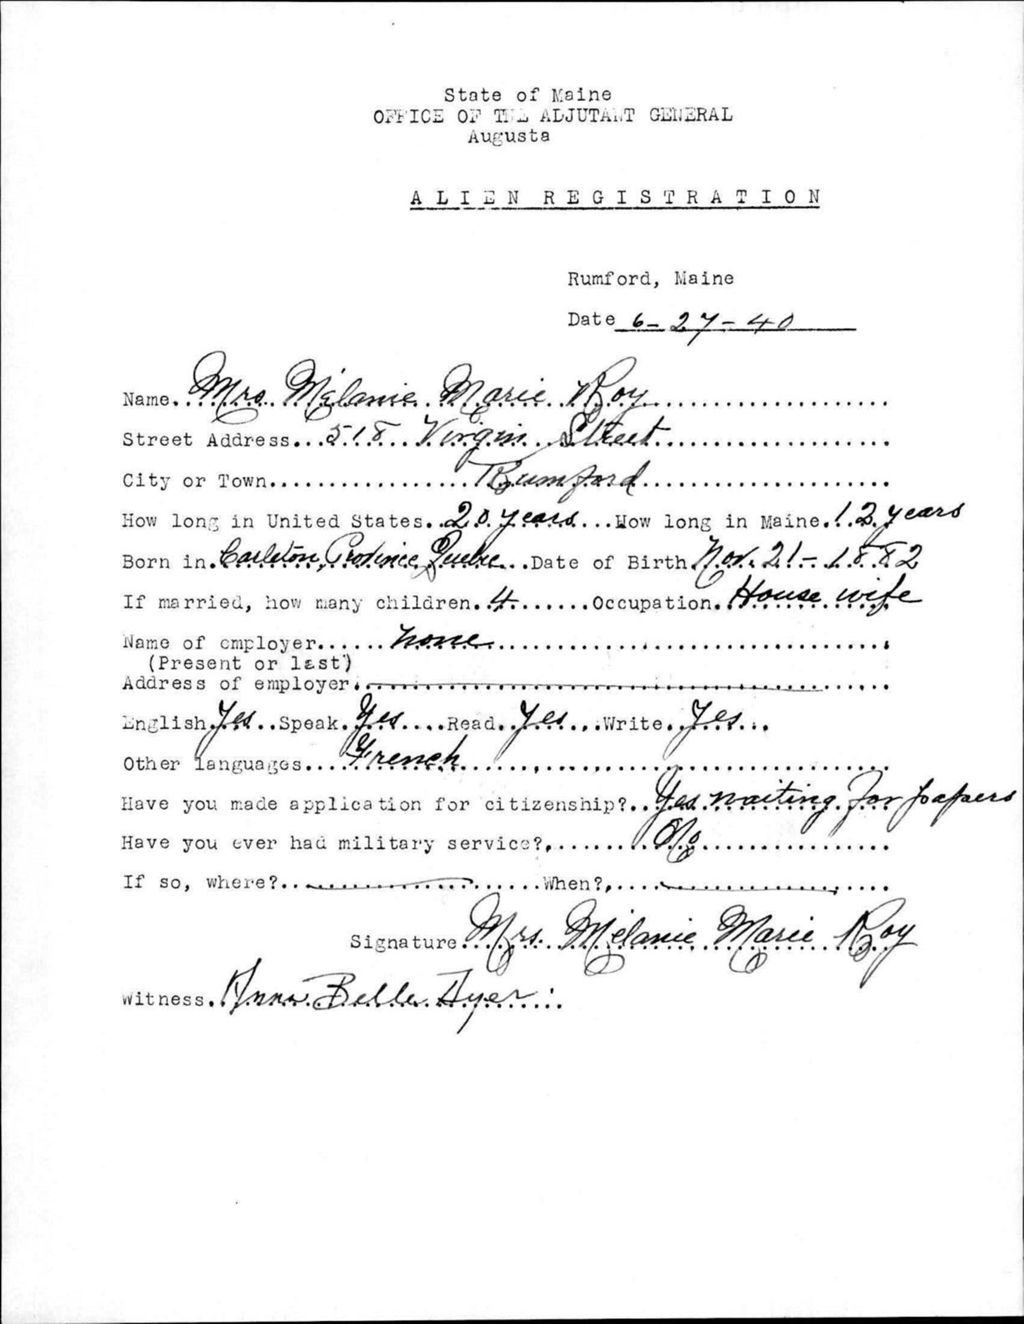 State of Maine
OFFICE OF THE ADJUTANT GENERAL
Augusta
ALIEN REGISTRATION
Rumford, Maine
Date 6-27-40
Name. Mrs. Mélanie Marie Roy
Street Address... 518 Virgin Street
City or Town... Rumford
How long in United States.. 20 years ...How long in Maine. 12 years
Born in. Carleton, Province Quebec ..Date of Birth Nov. 21-1882
If married, how many children. 4 ......Occupation. House wife
Name of employer...... none
(Present or last)
Address of employer.
English Yes ..Speak. Yes ....Read.. Yes ...Write.. Yes ...
Other languages.... French
Have you made application for citizenship?.. Yes waiting for papers
Have you ever had military service?....... No
If so, where?.. ......When?.....
Signature Mrs. Mélanie Marie Roy
Witness. Anna Belle Dyer